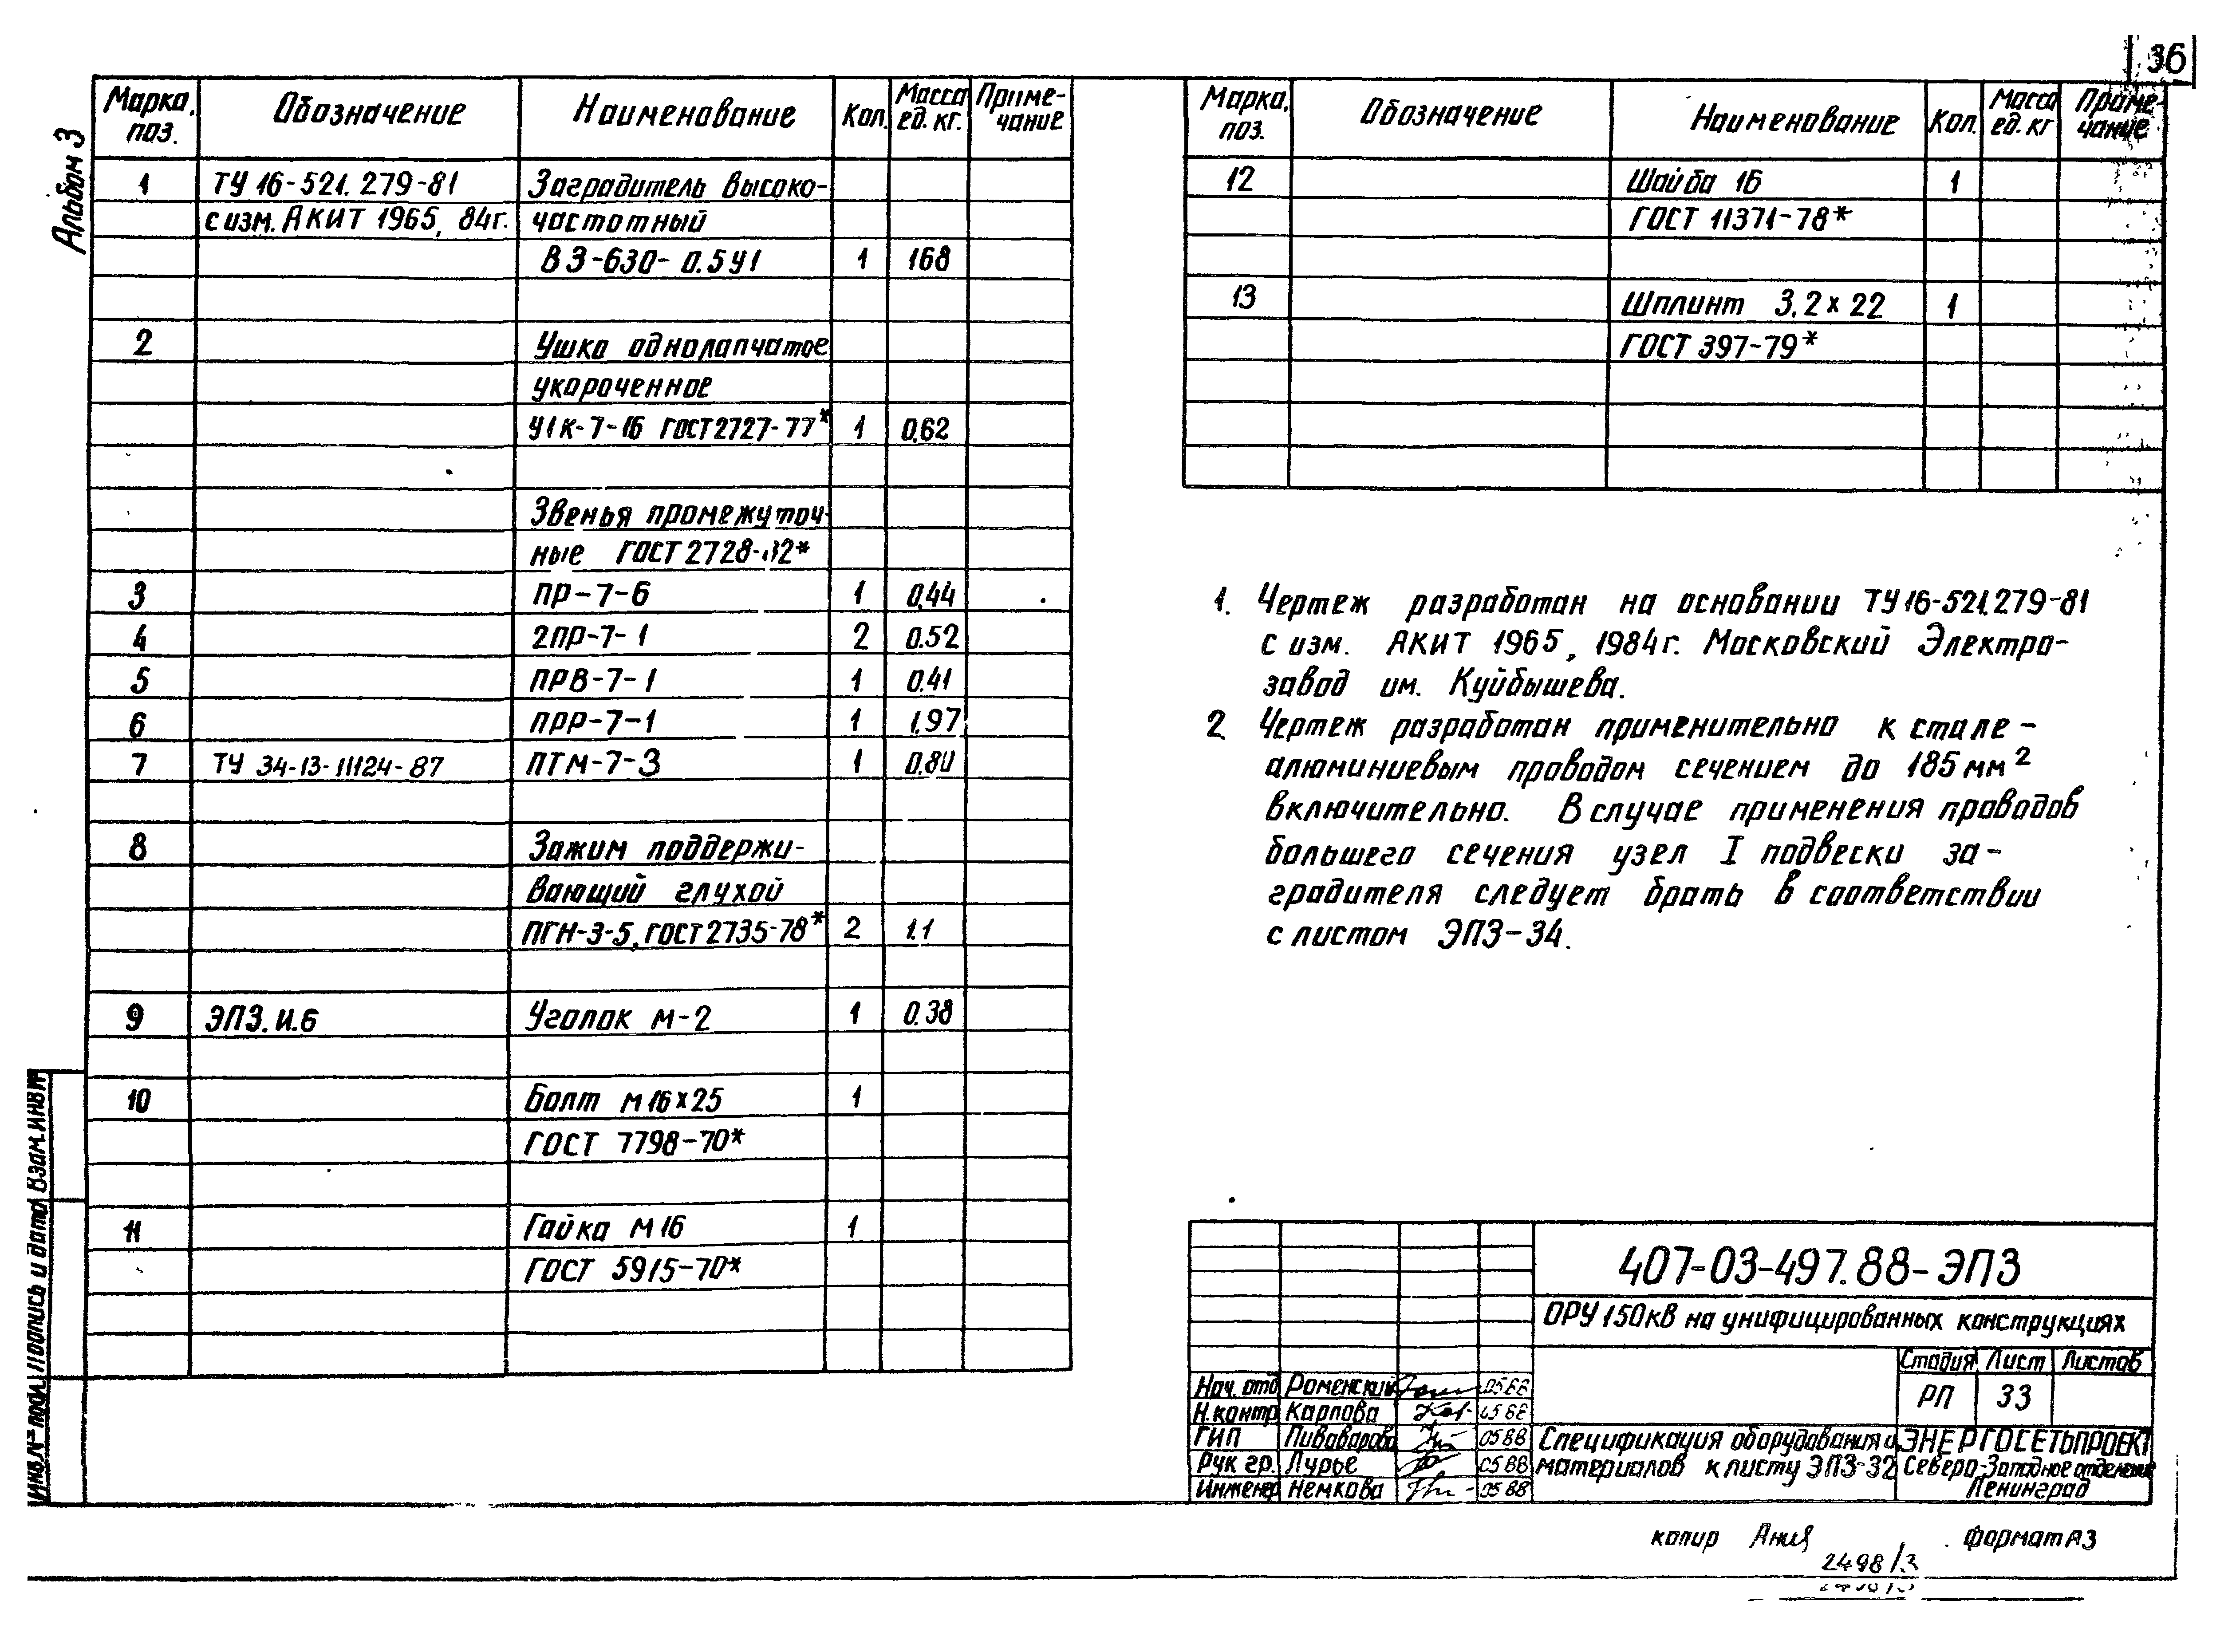 36
Альбом 3
Марка, поз. Обозначение Наименование Кол. Масса ед. кг. Приме-чание
1 ТУ 16-521.279-81 Заградитель высоко-
с изм. АКИТ 1965, 84г. частотный
ВЗ-630-0.5У1 1 168
2 Ушко однолапчатое
укороченное
У1К-7-16 ГОСТ 2727-77* 1 0,62
Звенья промежуточ-
ные ГОСТ 2728-82*
3 ПР-7-6 1 0,44
4 2ПР-7-1 2 0.52
5 ПРВ-7-1 1 0.41
6 ПРР-7-1 1 1.97
7 ТУ 34-13-11124-87 ПТМ-7-3 1 0.80
8 Зажим поддержи-
вающий глухой
ПГН-3-5, ГОСТ 2735-78* 2 1.1
9 ЭП3.И.6 Уголок М-2 1 0.38
10 Болт М16х25 1
ГОСТ 7798-70*
11 Гайка М16 1
ГОСТ 5915-70*
Марка, поз. Обозначение Наименование Кол. Масса ед. кг Приме-чание
12 Шайба 16 1
ГОСТ 11371-78*
13 Шплинт 3.2х22 1
ГОСТ 397-79*
1. Чертеж разработан на основании ТУ16-521.279-81
с изм. АКИТ 1965, 1984г. Московский Электро-
завод им. Куйбышева.
2. Чертеж разработан применительно к стале-
алюминиевым проводом сечением до 185 мм²
включительно. В случае применения проводов
большего сечения узел I подвески за-
градителя следует брать в соответствии
с листом ЭП3-34.
407-03-497.88-ЭП3
ОРУ 150кВ на унифицированных конструкциях
Стадия Лист Листов
РП 33
Нач. отд Роменский 05 88
Н.контр Карпова 05 88
ГИП Пивоварова 05 88
Рук гр. Лурье 05 88
Инженер Немкова 05 88
Спецификация оборудования и
материалов к листу ЭП3-32
ЭНЕРГОСЕТЬПРОЕКТ
Северо-Западное отделение
Ленинград
Инв.№ подл. Подпись и дата Взам.инв.№
копир Анил
формат А3
2498/3